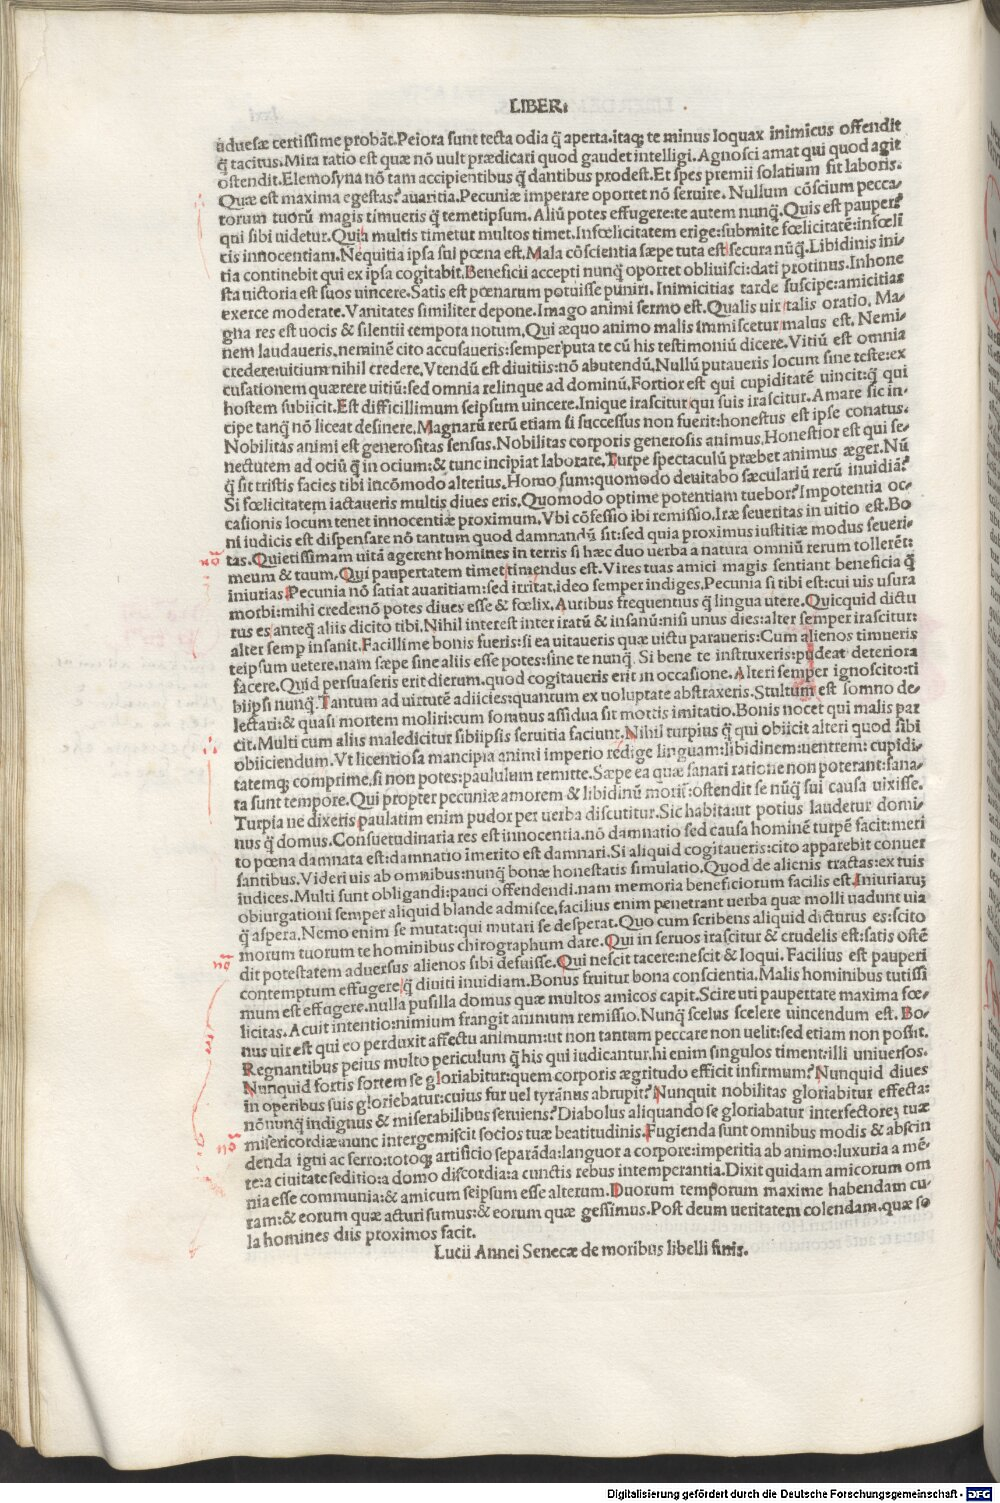 LIBER:
aduersæ certissime probāt. Peiora sunt tecta odia q̄ aperta. itaq; te minus loquax inimicus offendit
q̄ tacitus. Mira ratio est quæ nō uult prædicari quod gaudet intelligi. Agnosci amat qui quod agit
ostendit. Elemosyna nō tam accipientibus q̄ dantibus prodest. Et spes premii solatium fit laboris.
Quæ est maxima egestas? auaritia. Pecuniæ imperare oportet nō seruire. Nullum cōscium pecca-
torum tuorū magis timueris q̄ temetipsum. Aliū potes effugere: te autem nunq̄. Quis est pauper?
qui sibi uidetur. Qui a multis timetur multos timet. Infœlicitatem erige: submite fœlicitatē: infœli
cis innocentiam. Nequitia ipsa sui pœna est. Mala cōscientia sæpe tuta est secura nūq̄. Libidinis ini-
tia continebit qui ex ipsa cogitabit. Beneficii accepti nunq̄ oportet obliuisci: dati protinus. Inhone
sta uictoria est suos uincere. Satis est pœnarum potuisse puniri. Inimicitias tarde suscipe: amicitias
exerce moderate. Vanitates similiter depone. Imago animi sermo est. Qualis uir talis oratio. Ma-
gna res est uocis & silentii tempora notum. Qui æquo animo malis immiscetur malus est. Nemi-
nem laudaueris. neminē cito accusaueris: semper puta te cū his testimoniū dicere. Vitiū est omnia
credere: uitium nihil credere. Vtendū est diuitiis: nō abutendū. Nullū putaueris locum sine teste: ex
cusationem quærere uitiū: sed omnia relinque ad dominū. Fortior est qui cupiditatē uincit: q̄ qui
hostem subiicit. Est difficillimum seipsum uincere. Inique irascitur qui suis irascitur. Amare sic in-
cipe tanq̄ nō liceat desinere. Magnarū rerū etiam si successus non fuerit: honestus est ipse conatus.
Nobilitas animi est generositas sensus. Nobilitas corporis generosis animus. Honestior est qui se-
nectutem ad ociū q̄ in ocium: & tunc incipiat laborare. Turpe spectaculū præbet animus æger. Nū
q̄ sit tristis facies tibi incōmodo alterius. Homo sum: quomodo deuitabo sæculariū rerū inuidiā?
Si fœlicitatem iactaueris multis diues eris. Quomodo optime potentiam tuebor? Impotentia oc-
casionis locum tenet innocentiæ proximum. Vbi cōfessio ibi remissio. Iræ seueritas in uitio est. Bo
ni iudicis est dispensare nō tantum quod damnandū sit: sed quia proximus iustitiæ modus seueri-
tas. Quietissimam uitā agerent homines in terris si hæc duo uerba a natura omniū rerum tollerēt:
meum & tuum. Qui paupertatem timet timendus est. Vires tuas amici magis sentiant beneficia q̄
iniurias. Pecunia nō satiat auaritiam: sed irritat. ideo semper indiges. Pecunia si tibi est: cui uis usura
morbi: mihi crede: nō potes diues esse & fœlix. Autibus frequentius q̄ lingua utere. Quicquid dictu
rus es anteq̄ aliis dicito tibi. Nihil interest inter iratū & insanū: nisi unus dies: alter semper irascitur:
alter semp insanit. Facillime bonis fueris: si ea uitaueris quæ uictu paraueris: Cum alienos timueris
teipsum uetere. nam sæpe sine aliis esse potes: sine te nunq̄. Si bene te instruxeris: pudeat deteriora
facere. Quid persuaseris erit dierum. quod cogitaueris erit in occasione. Alteri semper ignoscito: ti
biipsi nunq̄. Tantum ad uirtutē adiicies: quantum ex uoluptate abstraxeris. Stultum est somno de-
lectari: & quasi mortem moliri: cum somnus assidua sit mortis imitatio. Bonis nocet qui malis par
cit. Multi cum aliis maledicitur sibiipsis seruitia faciunt. Nihil turpius q̄ qui obiicit alteri quod sibi
obiiciendum. Vt licentiosa mancipia animi imperio redige linguam: libidinem: uentrem: cupidi-
tatemq; comprime. si non potes: paululum remitte. Sæpe ea quæ sanari ratione non poterant: sana-
ta sunt tempore. Qui propter pecuniæ amorem & libidinū motū: ostendit se nūq̄ sui causa uixisse.
Turpia ne dixeris paulatim enim pudor per uerba discutitur. Sic habita: ut potius laudetur domi-
nus q̄ domus. Consuetudinaria res est innocentia. nō damnatio sed causa hominē turpē facit: meri
to pœna damnata est: damnatio īmerito est damnari. Si aliquid cogitaueris: cito apparebit conuer
santibus. Videri uis ab omnibus: nunq̄ bonæ honestatis simulatio. Quod de alienis tractas: ex tuis
iudices. Multi sunt obligandi: pauci offendendi. nam memoria beneficiorum facilis est. Iniuriarū;
obiurgationi semper aliquid blande admisce. facilius enim penetrant uerba quæ molli uadunt uia
q̄ aspera. Nemo enim se mutat: qui mutari se desperat. Quo cum scribens aliquid dicturus es: scito
morum tuorum te hominibus chirographum dare. Qui in seruos irascitur & crudelis est: satis ostē
dit potestatem aduersus alienos sibi defuisse. Qui nescit tacere: nescit & loqui. Facilius est pauperi
contemptum effugere q̄ diuiti inuidiam. Bonus fruitur bona conscientia. Malis hominibus tutissi
mum est effugere. nulla pusilla domus quæ multos amicos capit. Scire uti paupertate maxima fœ-
licitas. Acuit intentio: nimium frangit animum remissio. Nunq̄ scelus scelere uincendum est. Bo-
nus uir est qui eo perduxit affectu animum: ut non tantum peccare non uelit: sed etiam non possit.
Regnantibus peius multo periculum q̄ his qui iudicantur. hi enim singulos timent: illi uniuersos.
Nunquid fortis fortem se gloriabitur: quem corporis ægritudo efficit infirmum? Nunquid diues
in operibus suis gloriebatur: cuius fur uel tyrānus abrupit? Nunquit nobilitas gloriabitur effecta:
nōnunq̄ indignus & miserabilibus seruiens? Diabolus aliquando se gloriabatur interfectorē; tuæ
misericordiæ: nunc intergemiscit socios tuæ beatitudinis. Fugienda sunt omnibus modis & abscin
denda igni ac ferro: totoq; artificio separāda: languor a corpore: imperitia ab animo: luxuria a mē-
te: a ciuitate seditio: a domo discordia: a cunctis rebus intemperantia. Dixit quidam amicorum om
nia esse communia: & amicum seipsum esse alterum. Duorum temporum maxime habendam cu-
ram: & eorum quæ acturi sumus: & eorum quæ gessimus. Post deum ueritatem colendam. quæ so
la homines diis proximos facit.
Lucii Annei Senecæ de moribus libelli finis.
Digitalisierung gefördert durch die Deutsche Forschungsgemeinschaft - DFG